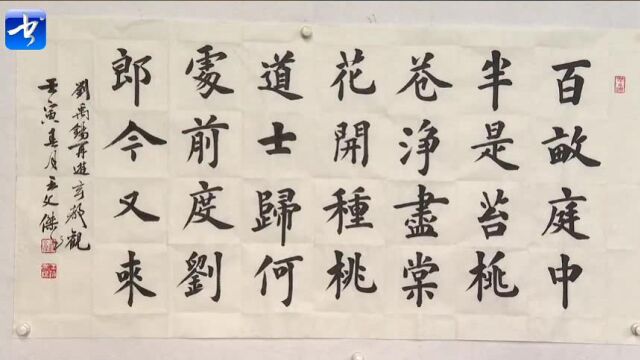 百畝庭中
半是苔桃
花浄盡菜
花開種桃
道士歸何
處前度劉
郎今又來
劉禹錫再遊玄都觀
壬寅春月王文傑